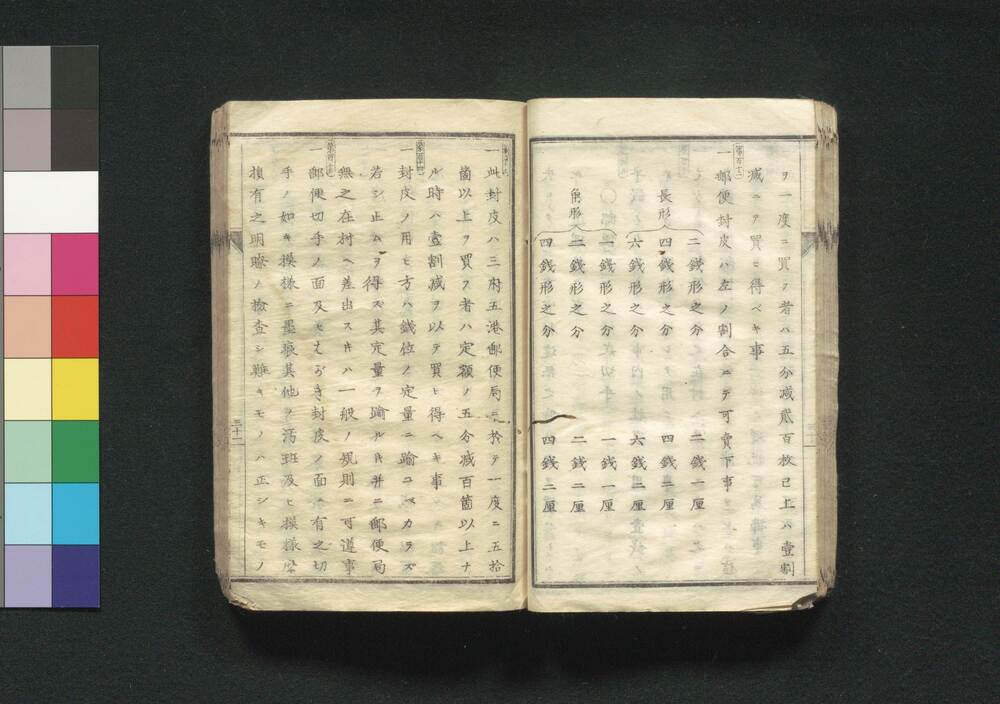 ヲ一度ニ買フ者ハ五分減貳百枚已上ハ壹割
減ニテ買ヒ得ベキ事
第百十二
一郵便封皮ハ左ノ割合ニテ可賣下事
長形
二錢形之分 二錢一厘
四錢形之分 四錢二厘
六錢形之分 六錢二厘
角形
一錢形之分 一錢一厘
二錢形之分 二錢二厘
四錢形之分 四錢二厘
一此封皮ハ三府五港郵便局ニ於テ一度ニ五拾
箇以上ヲ買フ者ハ定額ノ五分減百箇以上ナ
ル時ハ壹割減ヲ以テ買ヒ得ヘキ事
第百十四
一封皮ノ用ヒ方ハ錢位ノ定量ニ踰ユベカラズ
若シ止ムヲ得ズ其定量ヲ踰ルトキ并ニ郵便局
無之在村ヘ差出スキハ一般ノ規則ニ可遵事
第百十五
一郵便切手ノ面及ヒ封皮ノ面ニ有之切
手ノ如キ模樣ニ墨痕其他ヲ汚斑及ヒ模樣
損有之明瞭ノ檢査シ難キモノハ正シキモノ
三十二